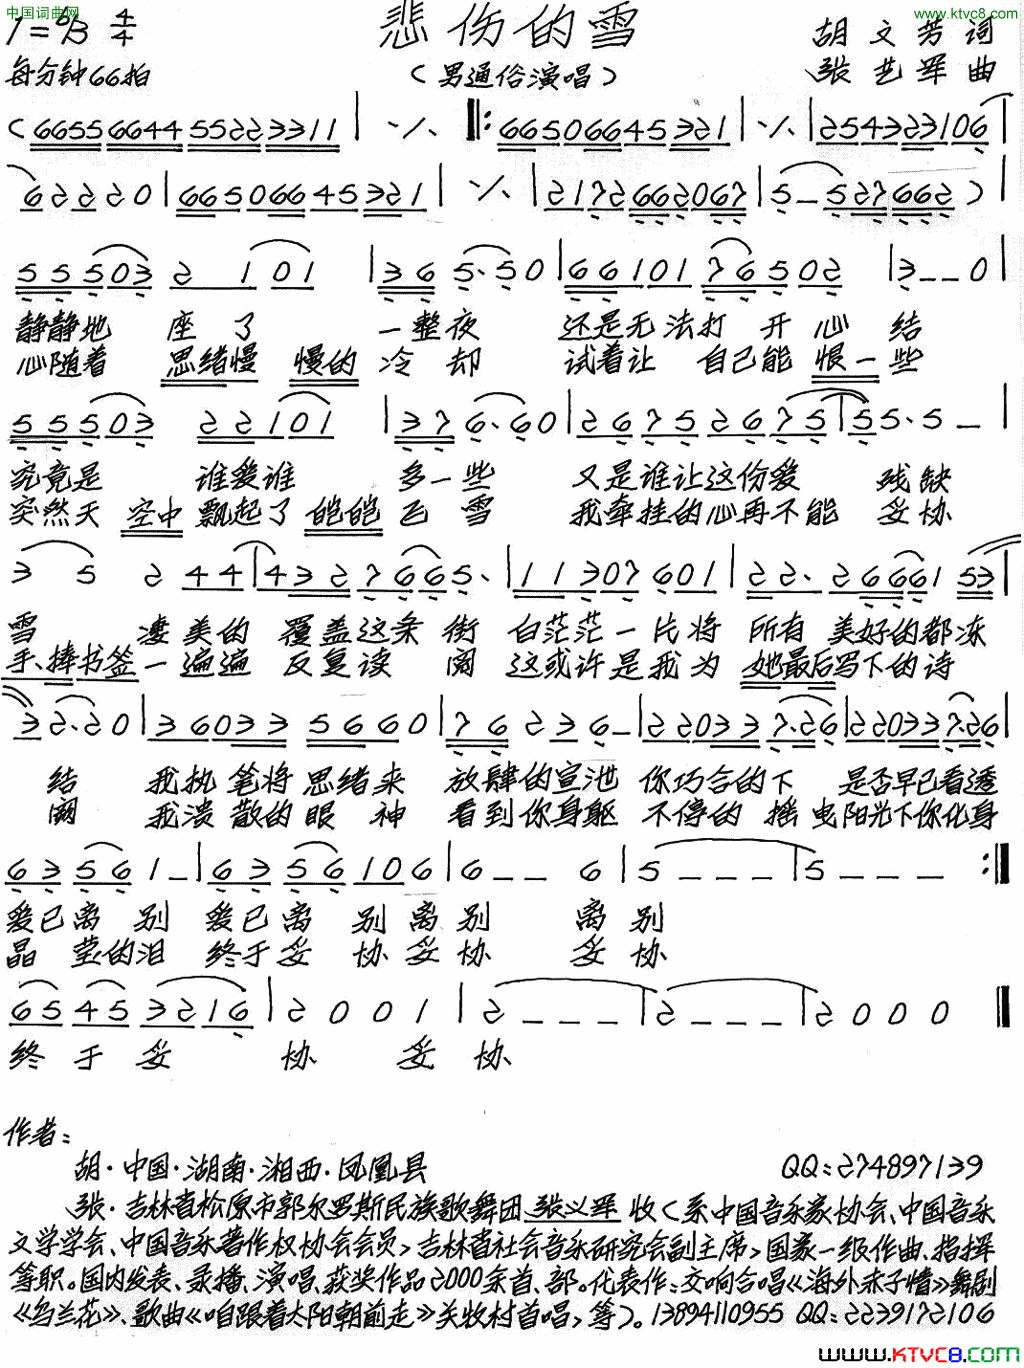 中国词曲网
www.ktvc8.com
1=♭B 4/4
悲伤的雪
胡文芳 词
每分钟66拍
(男通俗演唱)
张艺军 曲
(66556644 55223311 | ·/· ‖: 66506645321 | ·/· | 2543231 06 |
62220 | 66506645321 | ·/· | 217266206 7 | 5 – 527662) |
55503 2 1 01 | 36 5·50 | 66101 76502 | 3 – – 0 |
静静地 座了 一整夜 还是无法打开心结
心随着 思绪慢 慢的 冷却 试着让 自己能 恨一些
55503 22101 | 37 6·60 | 2675 2675 | 55·5 – |
究竟是 谁爱谁 多一些 又是谁让这份爱 残缺
突然天 空中 飘起了 皑皑飞雪 我牵挂的心再不能 妥协
3 5 2 44 | 4327665· | 11307 601 | 22· 26661 53 |
雪 凄美的 覆盖这条街 白茫茫一片将 所有 美好的都冻
手、捧书签一遍遍 反复读阅 这或许是我为 她最后写下的诗
32·20 | 36033 5660 | 76 236 – | 22033 7·26 | 22033 7·26 |
结 我执笔将 思绪来 放肆的宣泄 你巧合的下 是否早已看透
阕 我溃散的眼神 看到你身躯 不停的摇曳阳光下你化身
63 561 – | 63 56 106 | 6 – – 6 | 5 – – – | 5 – – – :‖
爱已离别 爱已离别离别 离别
晶莹的泪 终于妥协妥协 妥协
65 45 3216 | 2001 | 2 – – – | 2 – – – | 2000 ‖
终于妥 协 妥协
作者:
胡·中国·湖南·湘西·凤凰县 QQ:274897139
张·吉林省松原市郭尔罗斯民族歌舞团 张义军 收(系中国音乐家协会、中国音乐
文学学会、中国音乐著作权协会会员,吉林省社会音乐研究会副主席,国家一级作曲、指挥
等职。国内发表、录播、演唱、获奖作品2000余首、部。代表作:交响合唱《海外赤子情》舞剧
《乌兰花》、歌曲《咱跟着太阳朝前走》关牧村首唱,等)。13894110955 QQ:2239172106
www.KTVC8.com